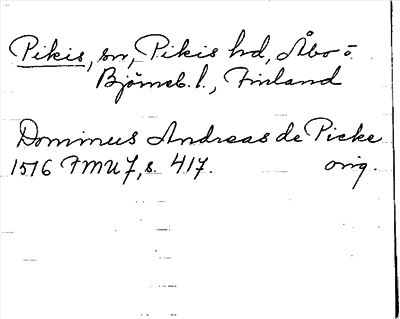 Pikis, sn, Pikis hd, Åbo o.
Björneb. l., Finland
Dominus Andreas de Picke
1516 FMU 7, s. 417. orig.